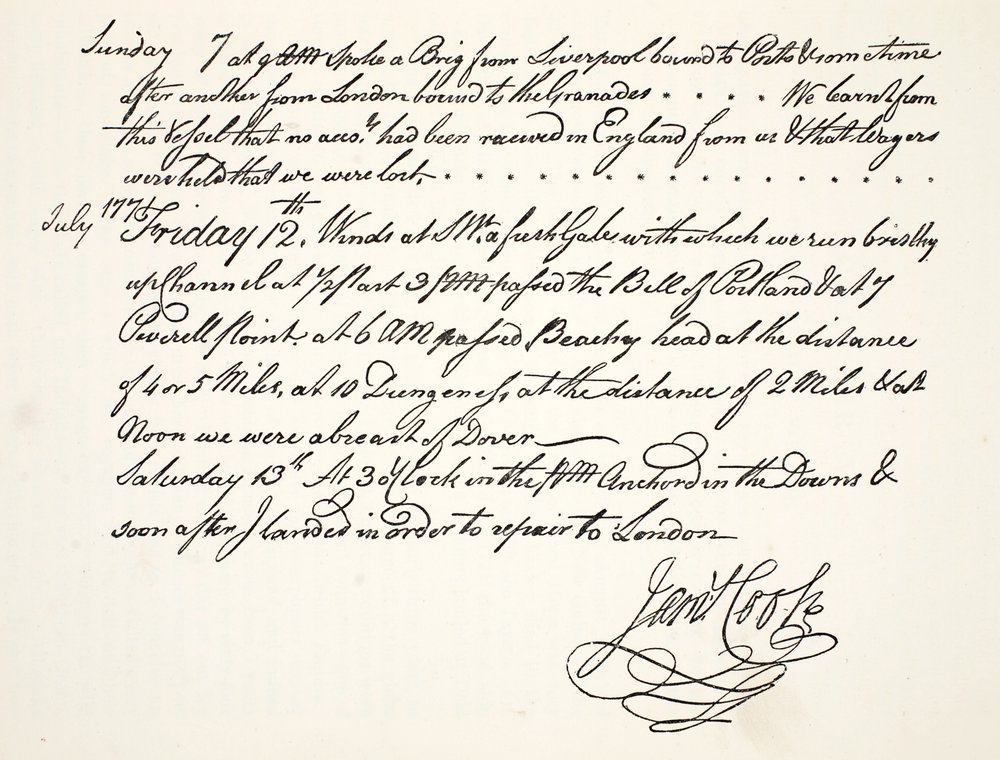 Sunday 7 at 9 AM spoke a Brig from Liverpool bound to Porto & some time
after another from London bound to the Granades . . . . . We learnt from
this Vessel that no acco.ts had been received in England from us & that Wagers
were held that we were lost. . . . . . . . . . . . . . . . .
July 1771 Friday 12th. Winds at SWt. a fresh Gale with which we run briskly
up Channel at 1/2 past 3 PM passed the Bell of Portland & at 7
Peverell Point. at 6 AM passed Beachy head at the distance
of 4 or 5 Miles, at 10 Dungeness, at the distance of 2 Miles & at
Noon we were abreast of Dover
Saturday 13th At 3 oClock in the PM Anchord in the Downs &
soon after I landed in order to repair to London
Jams. Cook